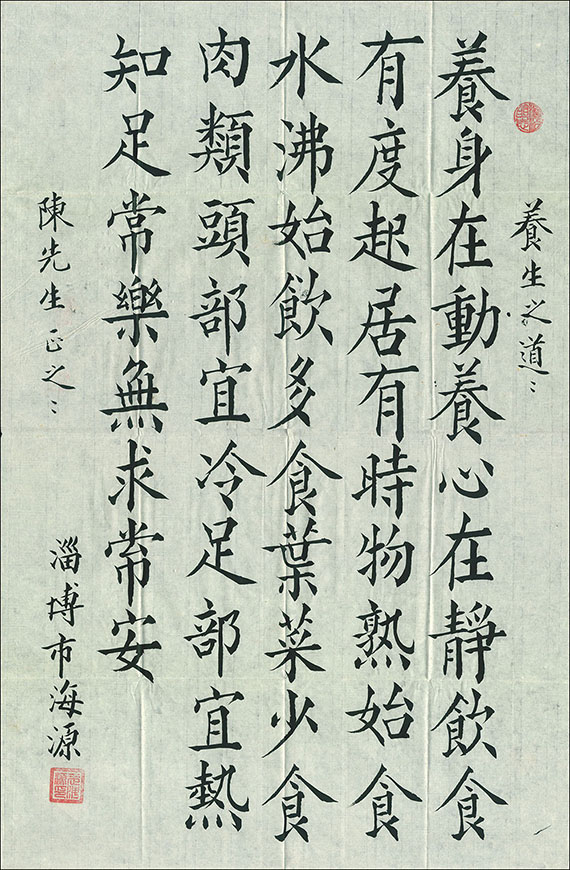 養生之道
養身在動養心在靜飲食
有度起居有時物熟始食
水沸始飲多食葉菜少食
肉類頭部宜冷足部宜熱
知足常樂無求常安
陳先生正之
淄博市海源